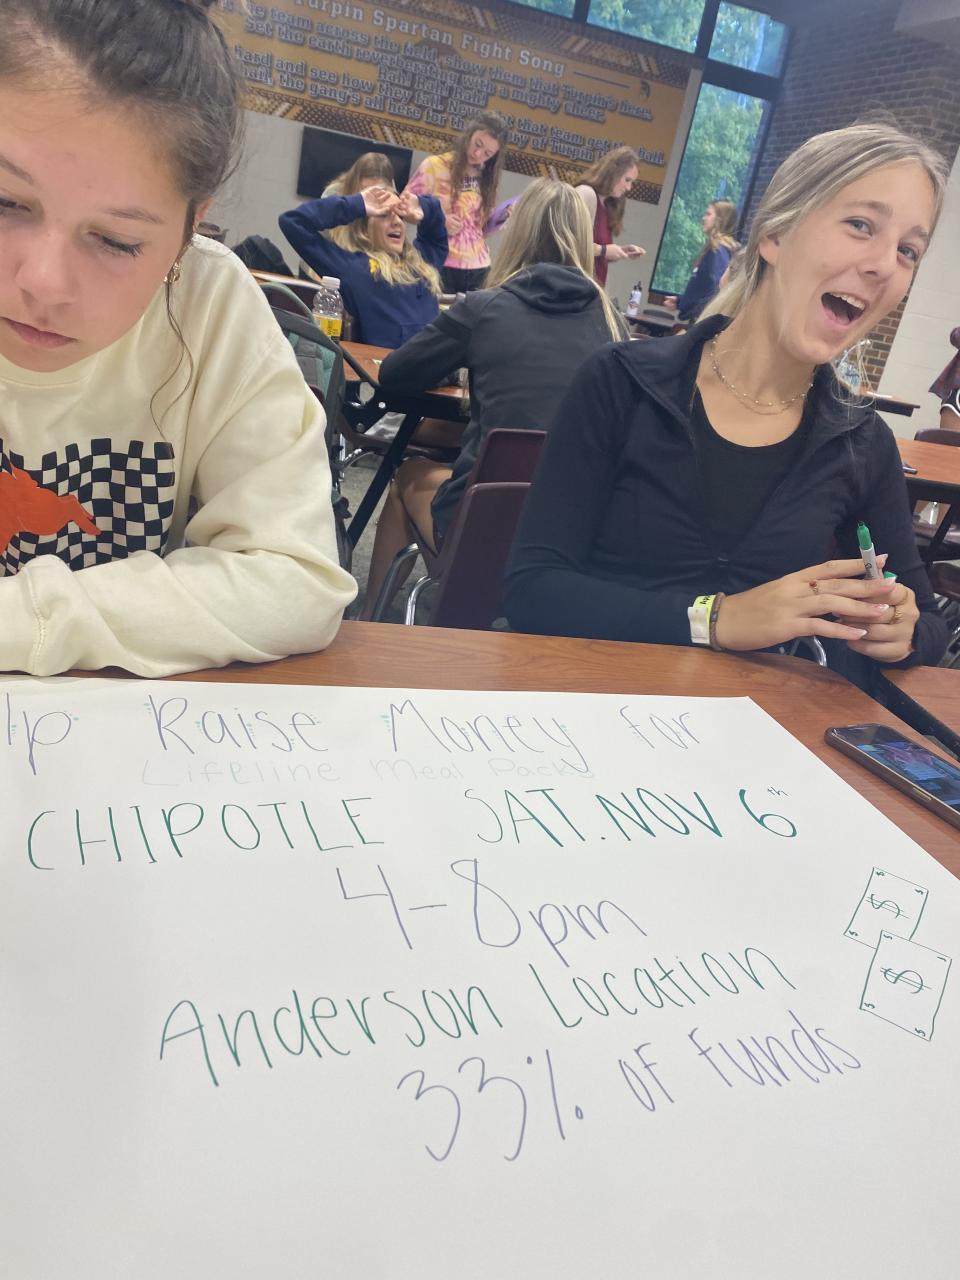 Turpin Spartan Fight Song
the team across the field, show them that Turpin's here.
Set the earth reverberating with a mighty cheer.
Rah! Rah! Rah!
hard and see how they fall. Never let that team get the ball.
hail, the gang's all here for the glory of Turpin
lp Raise Money for
Lifeline Meal Packs
CHIPOTLE SAT. NOV 6th
4-8pm
Anderson Location
$
$
33% of funds